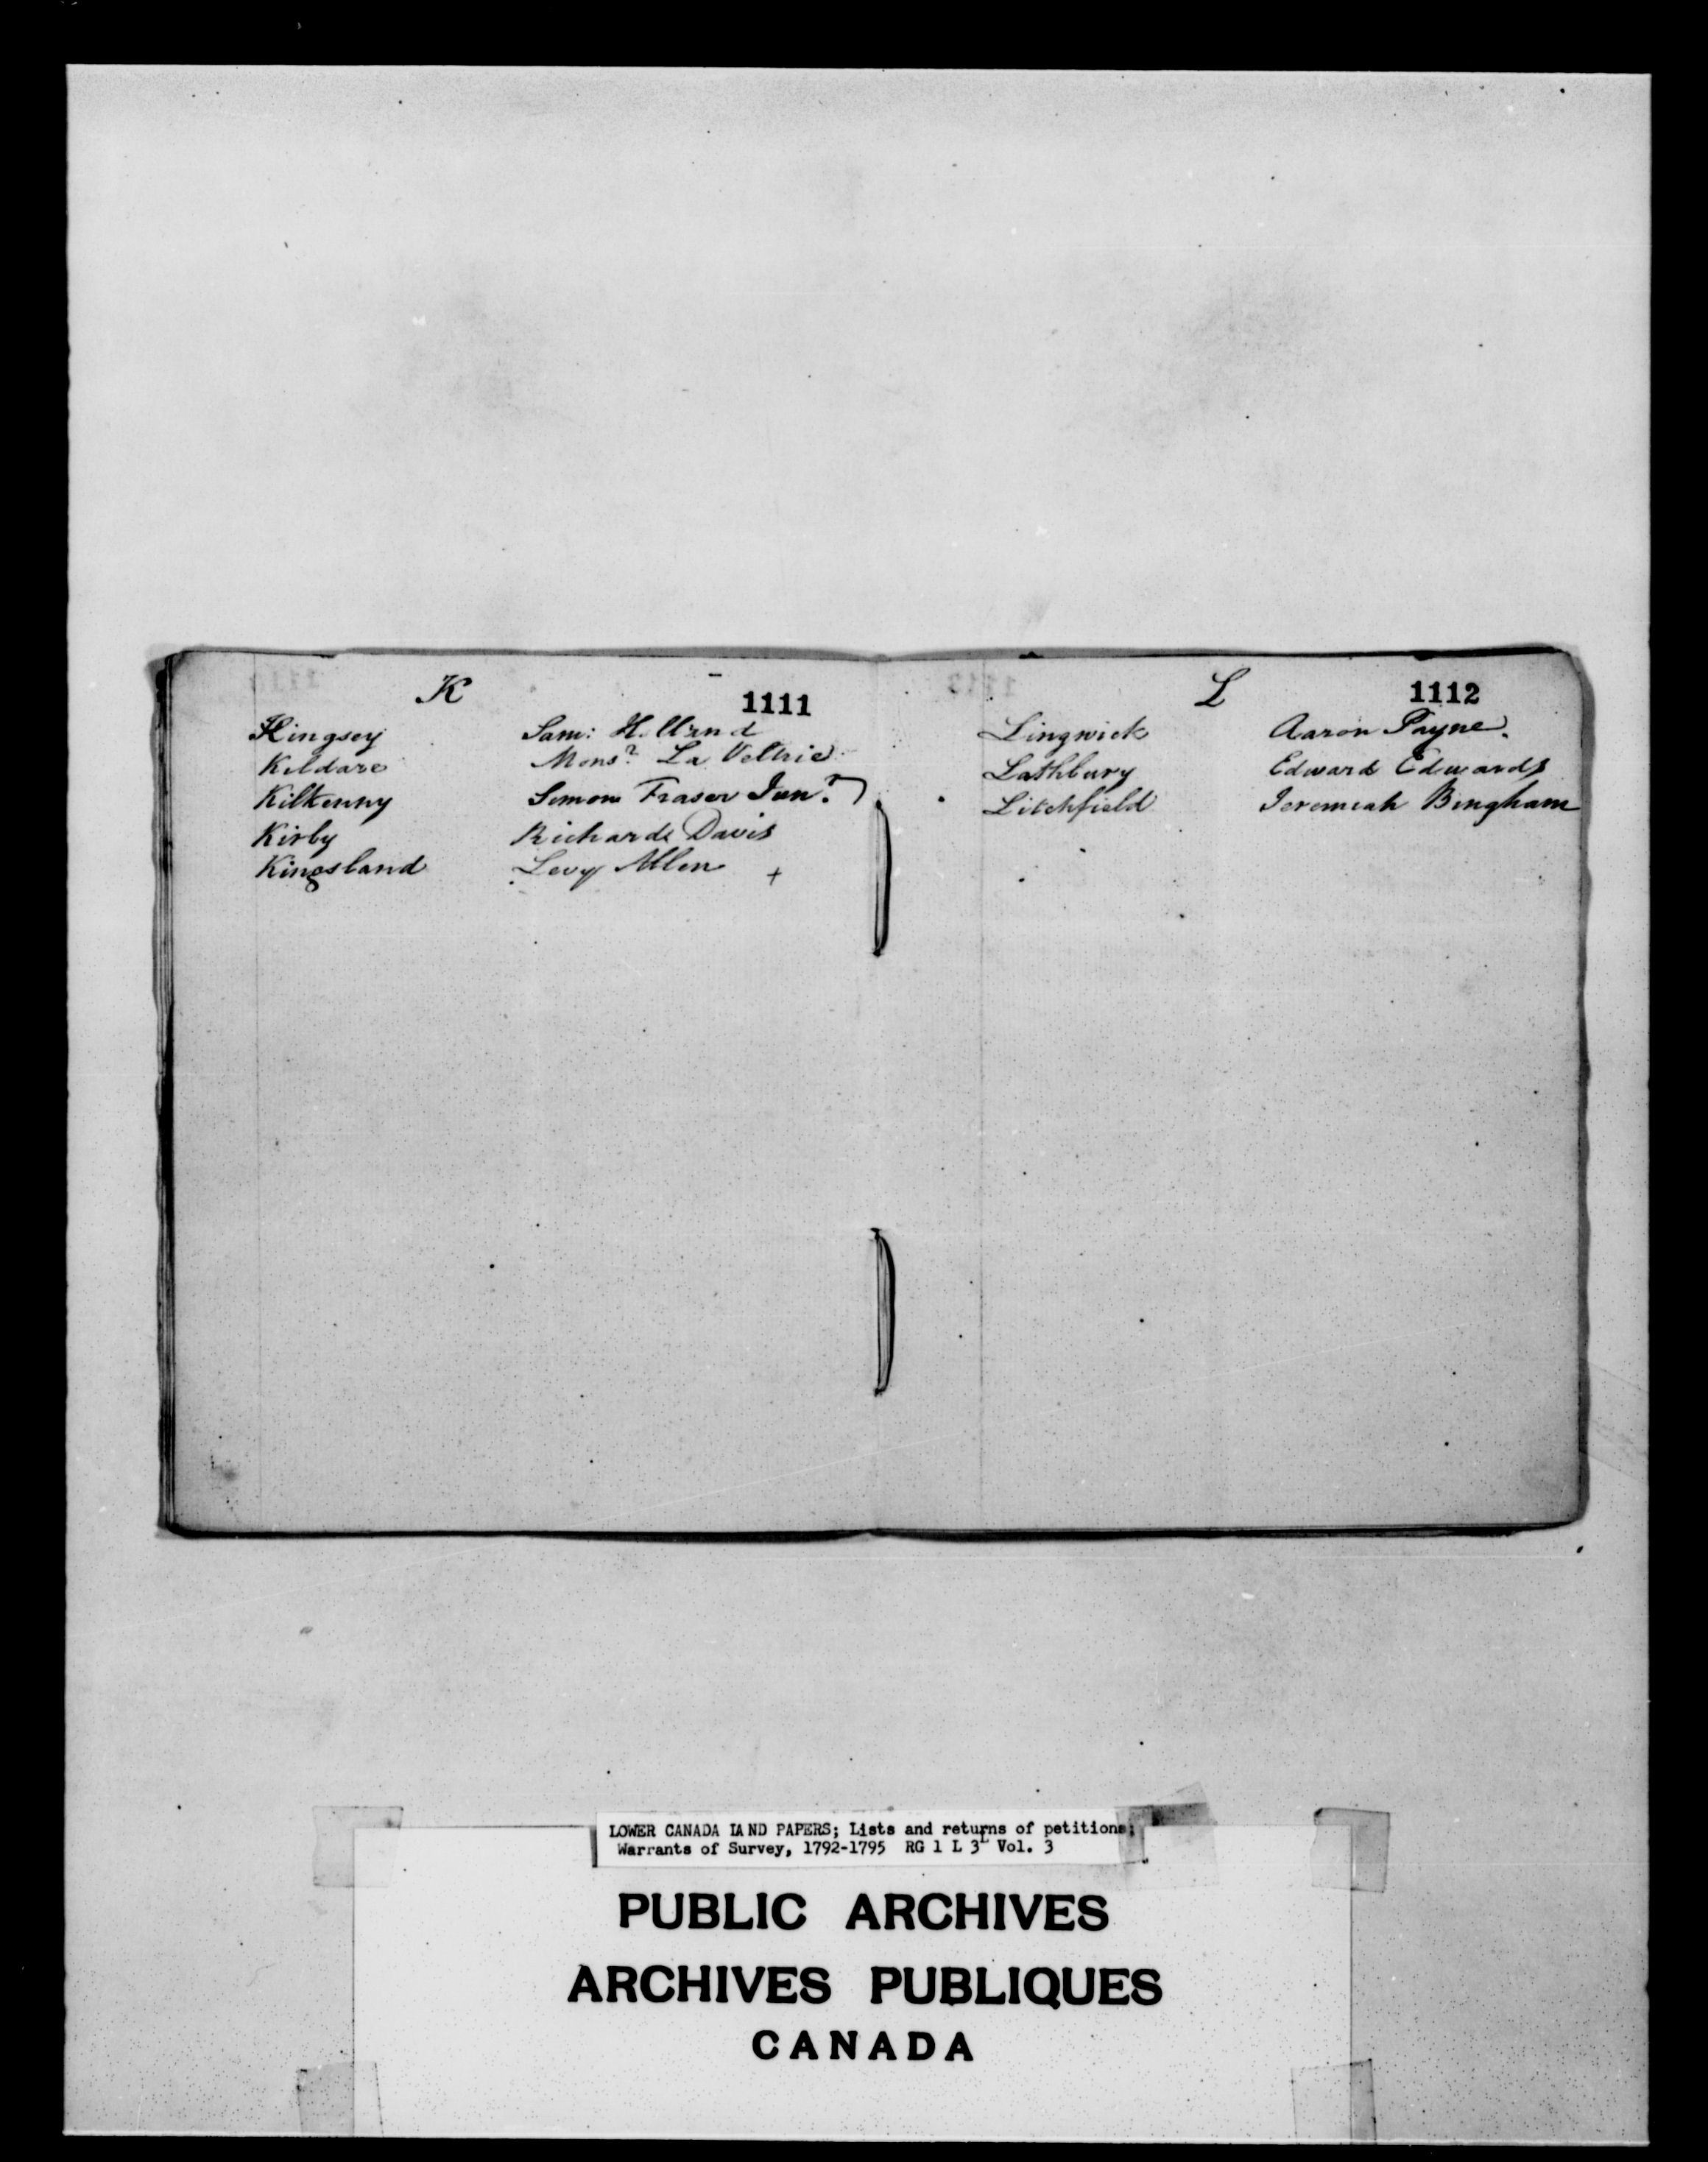 K
1111
Kingsey Sam: Holland
Kildare Monsr. La Veltrie
Kilkenny Simon Fraser Junr.
Kirby Richard Davis
Kingsland Levy Allen +
L
1112
Lingwick Aaron Payne.
Lathbury Edward Edwards
Litchfield Jeremiah Bingham
LOWER CANADA LAND PAPERS; Lists and returns of petitions;
Warrants of Survey, 1792-1795 RG 1 L 3L Vol. 3
PUBLIC ARCHIVES
ARCHIVES PUBLIQUES
CANADA